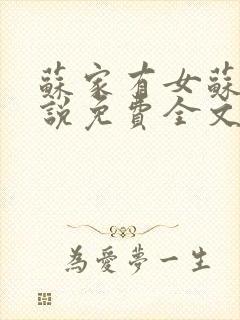 蘇家有女蘇
說免費全文
為愛夢一生